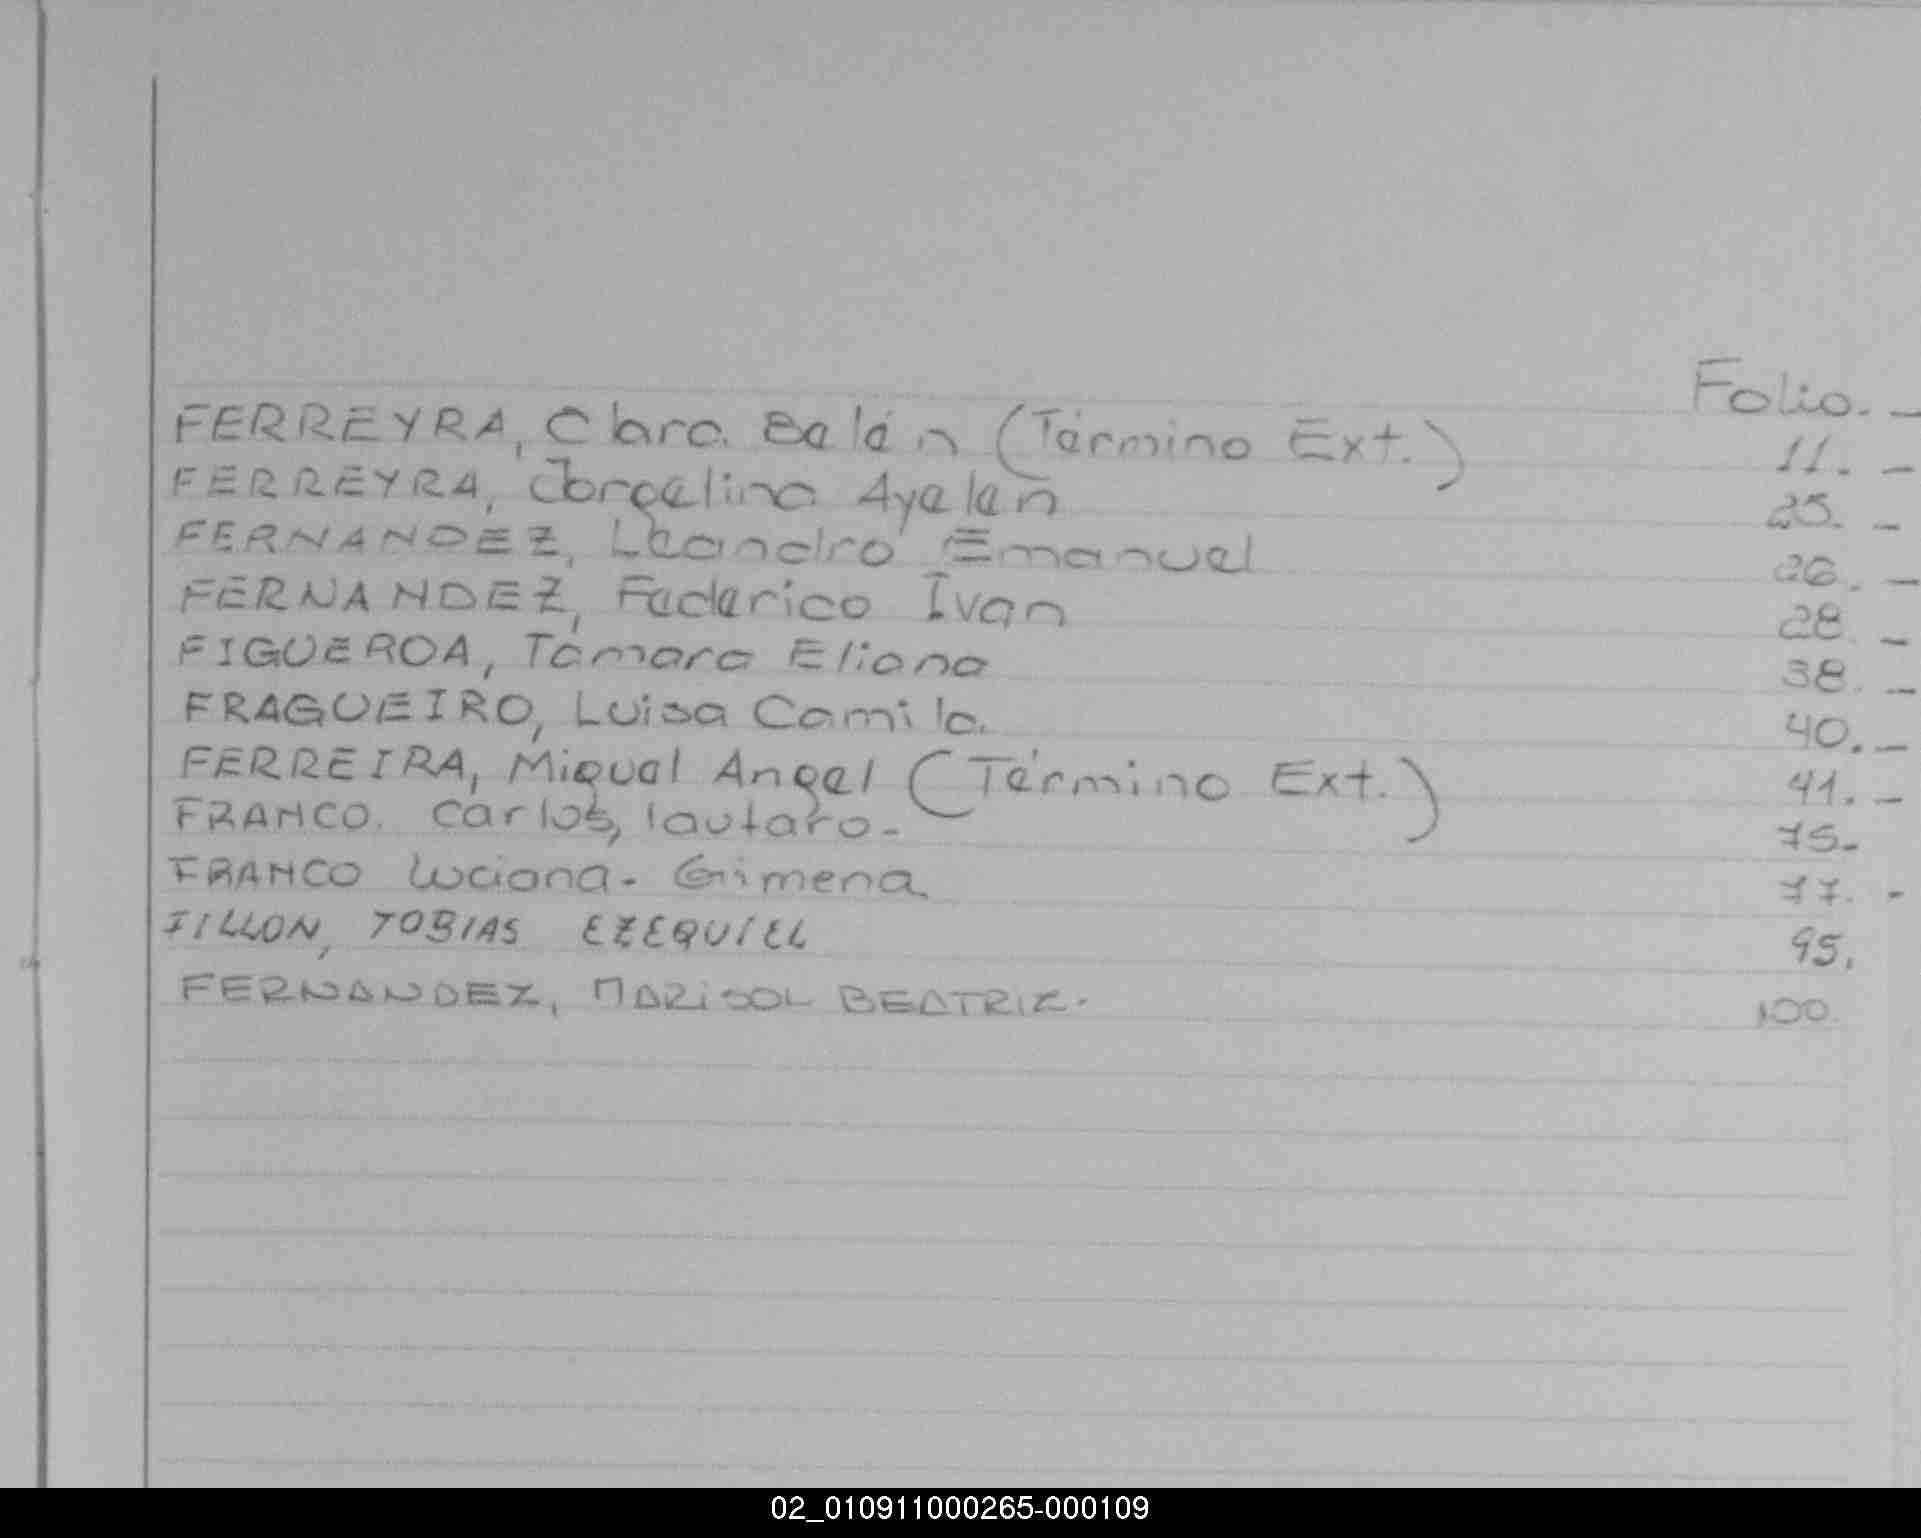 Folio. -
FERREYRA, Clara Belén (Término Ext.) 11. -
FERREYRA, Jorgelina Ayelen 25. -
FERNANDEZ, Leandro Emanuel 26. -
FERNANDEZ, Federico Ivan 28 -
FIGUEROA, Támara Eliana 38. -
FRAGUEIRO, Luisa Camila. 40. -
FERREIRA, Miguel Angel (Término Ext.) 41. -
FRANCO. Carlos, lautaro - 75. -
FRANCO Luciana - Gimena. 77. -
FILLON, TOBIAS EZEQUIEL 95.
FERNANDEZ, MARISOL BEATRIZ. 100
02_010911000265-000109